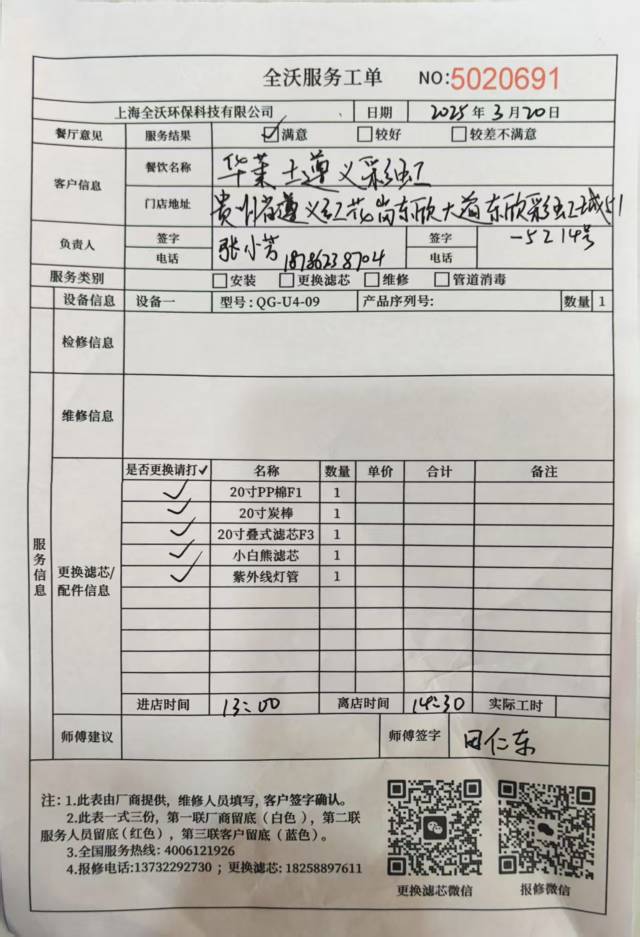 全沃服务工单 NO:5020691
上海全沃环保科技有限公司 日期 2025年3月20日
餐厅意见 服务结果 ☑满意 □较好 □较差不满意
客户信息 餐饮名称 华莱士遵义彩虹
门店地址 贵州省遵义红花岗东欣大道东欣彩虹城51
-5214号
负责人 签字 张小芳 签字
电话 18786238704 电话
服务类别 □安装 □更换滤芯 □维修 □管道消毒
设备信息 设备一 型号:QG-U4-09 产品序列号: 数量 1
检修信息
维修信息
服务信息
更换滤芯/配件信息
是否更换请打✓ 名称 数量 单价 合计 备注
✓ 20寸PP棉F1 1
✓ 20寸炭棒 1
✓ 20寸叠式滤芯F3 1
✓ 小白熊滤芯 1
✓ 紫外线灯管 1
进店时间 13:00 离店时间 14:30 实际工时
师傅建议 师傅签字 田仁东
注:1.此表由厂商提供，维修人员填写,客户签字确认。
2.此表一式三份，第一联厂商留底(白色)，第二联
服务人员留底(红色)，第三联客户留底(蓝色)。
3.全国服务热线: 4006121926
4.报修电话:13732292730；更换滤芯: 18258897611
更换滤芯微信 报修微信